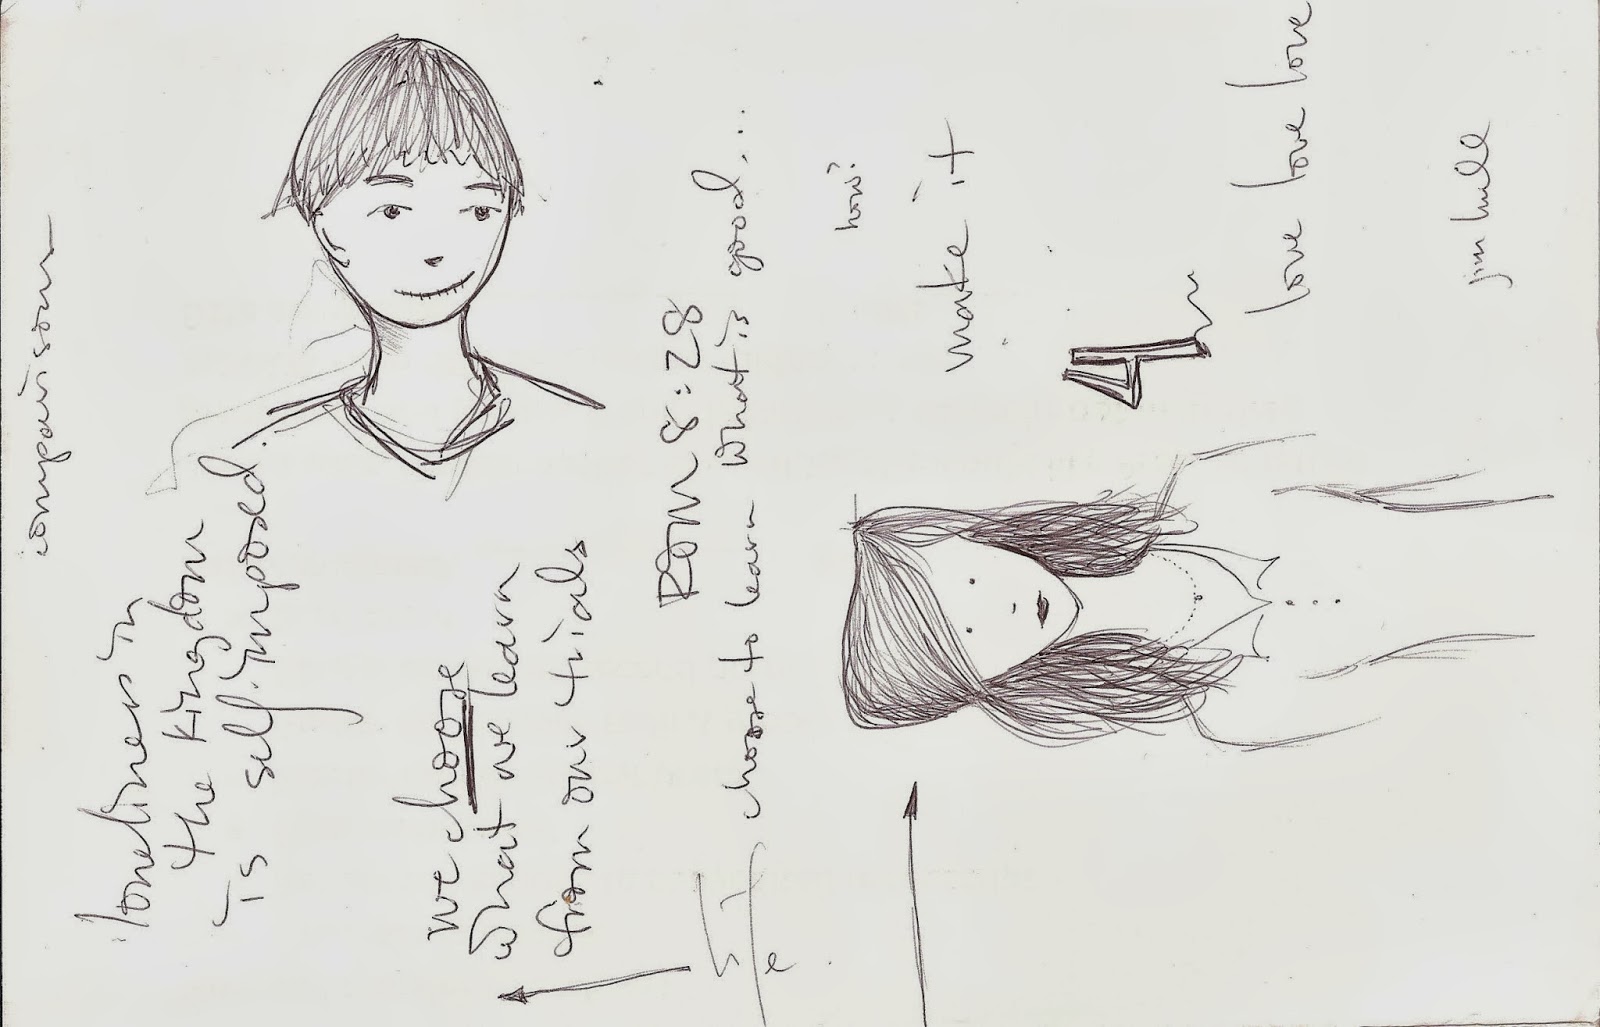 comparison
loneliness in
the kingdom
is self-imposed.
we choose
what we learn
from our trials
ROM 8:28
choose to learn what is good...
how?
make it
4
love love love